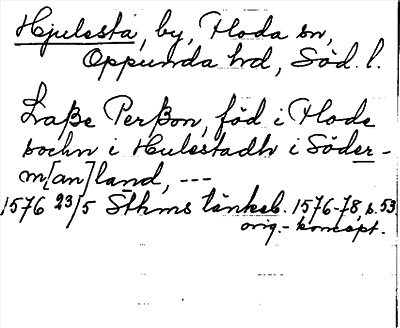 Hjulsta, by, Floda sn,
Oppunda hd, Söd. l.
Laße Perßon, föd i Flode
sochn i Hulestadh i Söder-
m[an]land, ---
1576 23/5 Sthms tänkeb. 1576-78, s. 53.
orig.- koncept.